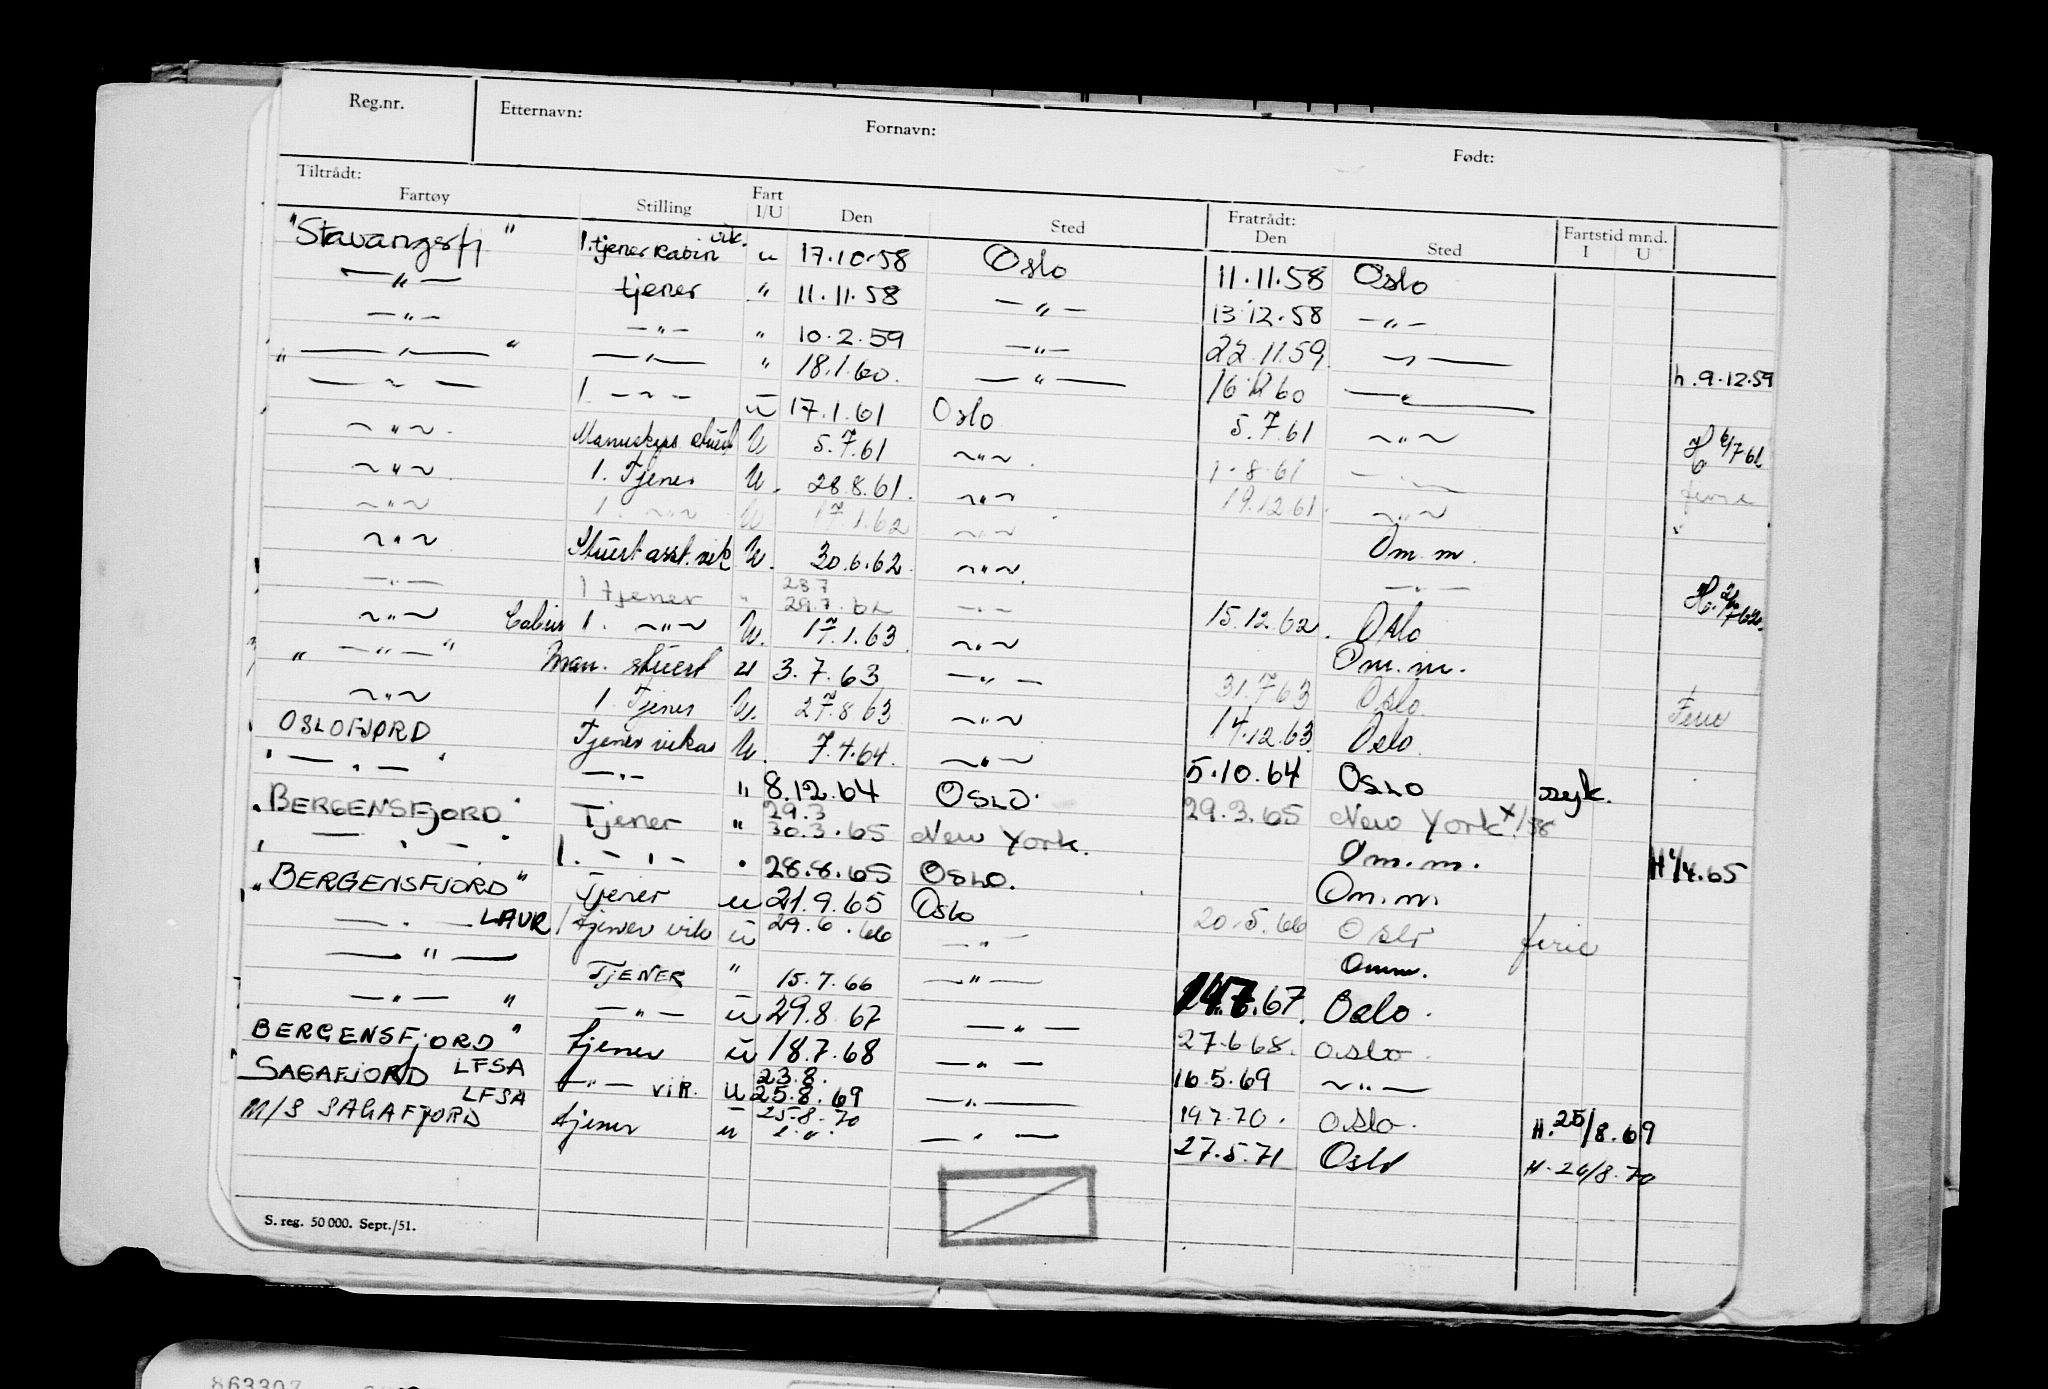 Reg.nr. Etternavn: Fornavn: Født:
Tiltrådt: Fratrådt:
Fartøy Stilling Fart I/U Den Sted Den Sted Fartstid mnd. I U
"Stavangerfj" 1.tjener Kabin vik. u 17.10.58 Oslo 11.11.58 Oslo
—"— tjener " 11.11.58 —"— 13.12.58 —"—
—"— —"— " 10.2.59 —"— 22.11.59 —"— h.9.12.59
" —"— " —"— " 18.1.60. —"— 16.12.60 —"—
—"— 1. —"— u 17.1.61 Oslo 5.7.61 —"— H 6/7 61
—"— Mannskaps stuert U 5.7.61 —"— 1.8.61 —"— ferie
—"— 1. Tjener U. 28.8.61. —"— 19.12.61. —"— "
—"— 1. —"— U 17.1.62 —"— Om. m.
—"— Stuert asst. vik U. 30.6.62. —"— —"— H.
—"— 1 tjener " 29.7.62 —"— 15.12.62. Oslo
—"— Cabin 1. —"— U. 17.1.63. —"— Om. m.
" —"— " Man. stuert u 3.7.63 —"— 31.7.63 Oslo. Ferie
—"— 1. Tjener U. 27.8.63 —"— 14.12.63. Oslo.
OSLOFJORD Tjener vikar U. 7.4.64. —"— 5.10.64 OSLO syk.
" —"— " —"— " 8.12.64 OSLO. 29.3.65 New York
"BERGENSFJORD" Tjener " 29.3 30.3.65 New York. Om.m. H 1/4.65
" —"— " 1. —"— " 28.8.65 OSLO. Om.m.
"BERGENSFJORD" Tjener u 21.9.65 Oslo 20.5.66 Oslo ferie
—"— LAUR 1 tjener vik u 29.6.66 —"— Omm.
—"— TJENER " 15.7.66 —"— 67. Oslo.
—"— " —"— u 29.8.67 —"— 27.6.68. Oslo.
BERGENSFJORD" tjener u 18.7.68 —"— 16.5.69 —"—
SAGAFJORD LFSA —"— VIK. u 23.8. 25.8.69 —"— 19.7.70. Oslo. H.25/8.69
M/S SAGAFJORD LFSA tjener u 25.8.70 —"— 27.5.71 Oslo H.26/8.70
S. reg. 50 000. Sept./51.
863307